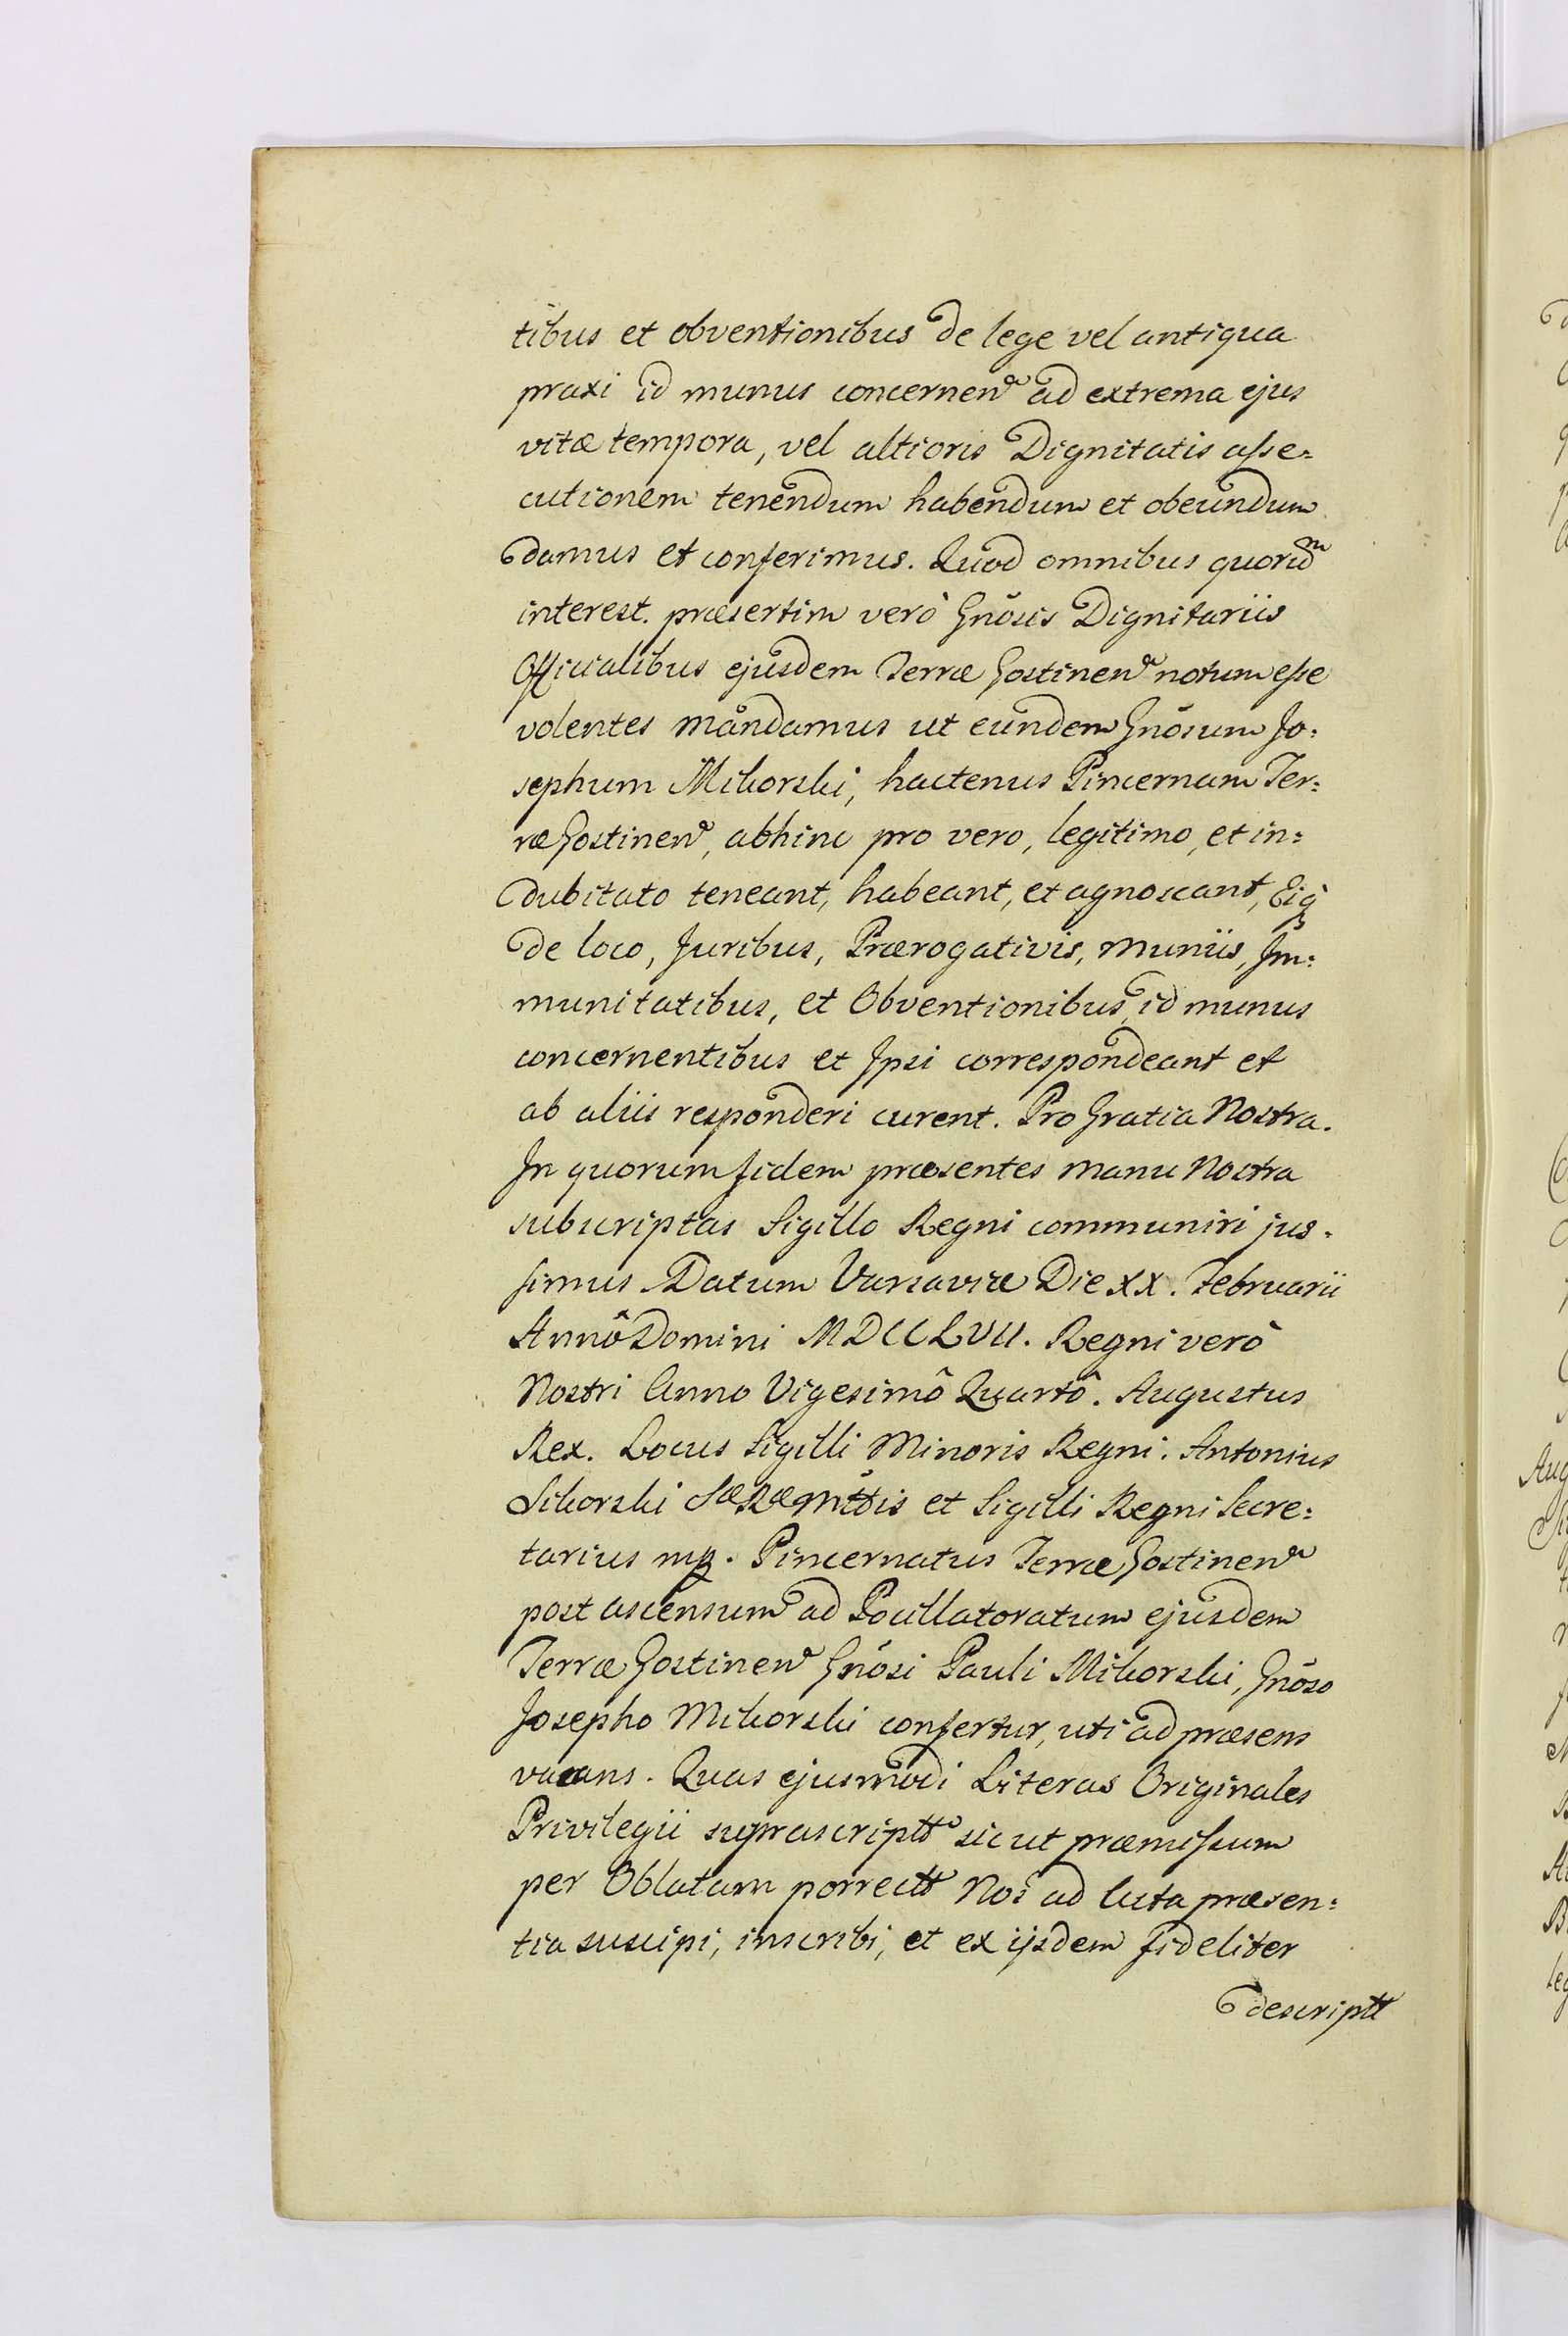 tibus et obventionibus de lege vel antiqua
praxi id munus concernen̄ ad extrema ejus
vitæ tempora, vel altioris Dignitatis asse=
cutionem tenendum habendum et obeundum
damus et conferimus. Quod omnibus quorum
interest. præsertim verò Gnōsis Dignitariis
Officialibus ejusdem Terræ Gostinen̄ notum esse
volentes mandamus ut eundem Gnōsum Jo=
sephum Mikorski, hactenus Pincernam Ter=
ræ Gostinen̄, abhinc pro vero, legitimo, et in=
dubitato teneant, habeant, et agnoscant, Eiq̀
de loco, Juribus, Prærogativis, muniis, Im=
munitatibus, et Obventionibus, id munus
concernentibus et Ipsi correspondeant et
ab aliis responderi curent. Pro Gratia Nostra.
In quorum fidem præsentes manu Nostra
subscriptas Sigillo Regni communiri jus=
simus. Datum Varsaviæ Die XX. Februarii
Annô Domini MDCCLVII. Regni verò
Nostri Anno Vigesimô Quartô. Augustus
Rex. Locus Sigilli Minoris Regni. Antonius
Sikorski SæRæMttis et Sigilli Regni Secre=
tarius mp. Pincernatus Terræ Gostinen̄
post ascensum ad Pocillatoratum ejusdem
Terræ Gostinen̄ Gnōsi Pauli Mikorski, Gnōso
Josepho Mikorski confertur, uti ad præsens
vacans. Quas ejusmodi Literas Originales
Privilegii suprascriptt sicut præmissum
per Oblatam porrectt Nos ad Acta præsen=
tia suscipi, inscribi, et ex ijsdem fideliter
descriptt